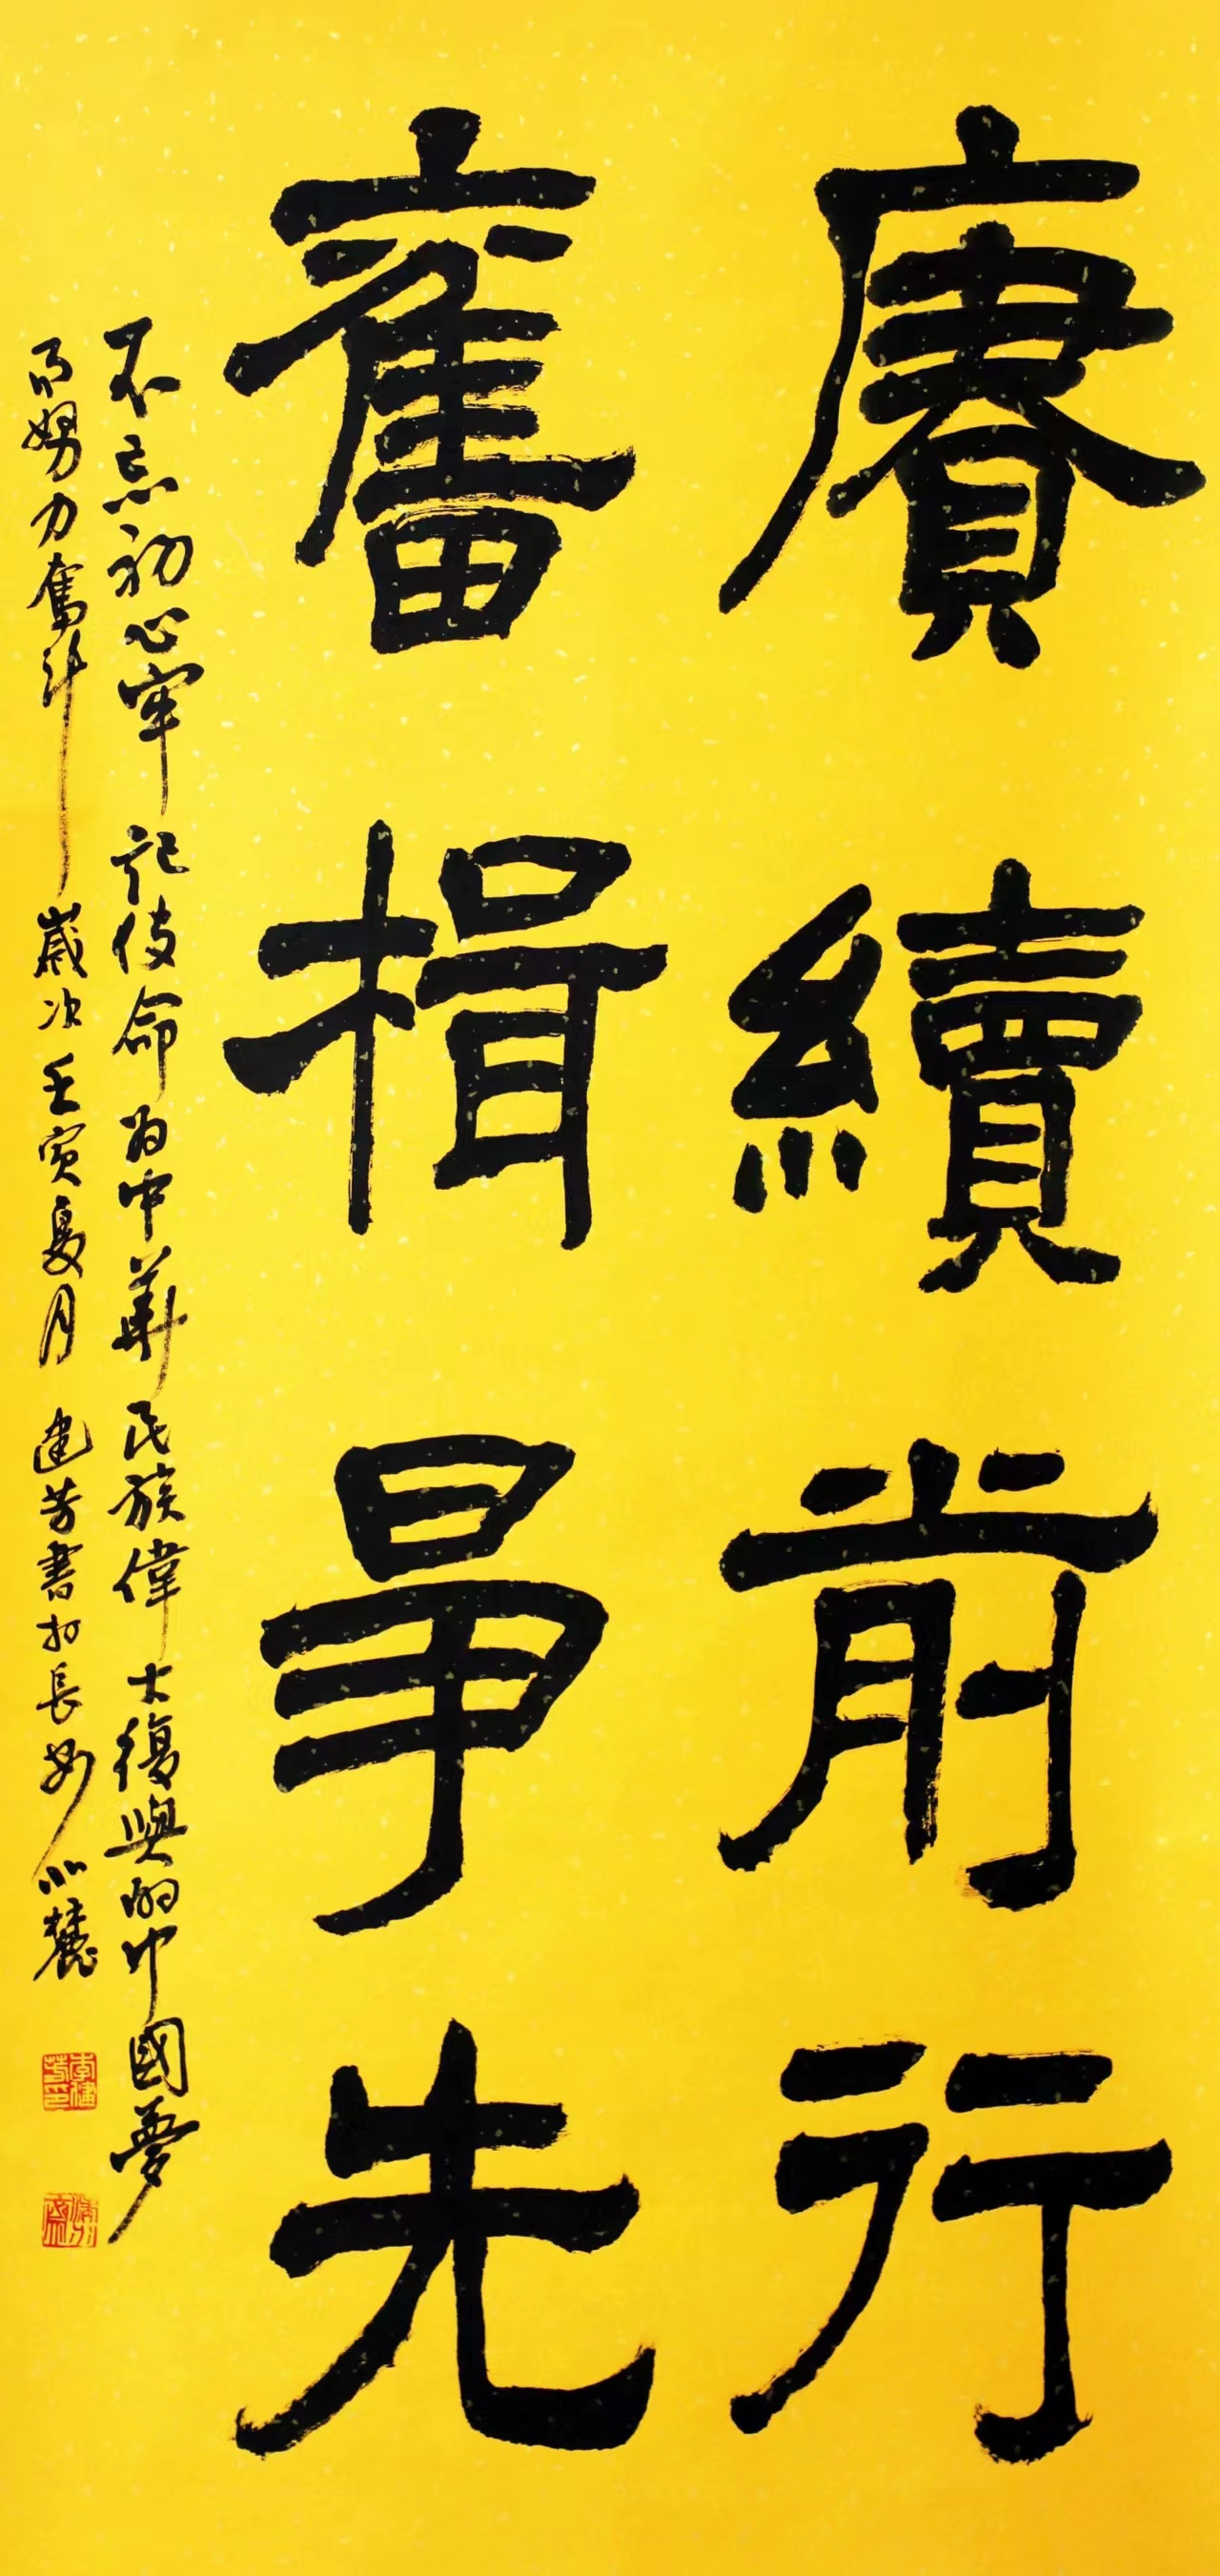 賡續前行
奮楫爭先
不忘初心牢記使命為中華民族偉大復興的中國夢
而努力奮斗 歲次壬寅夏月 建芳書於長沙小麓
李建芳印